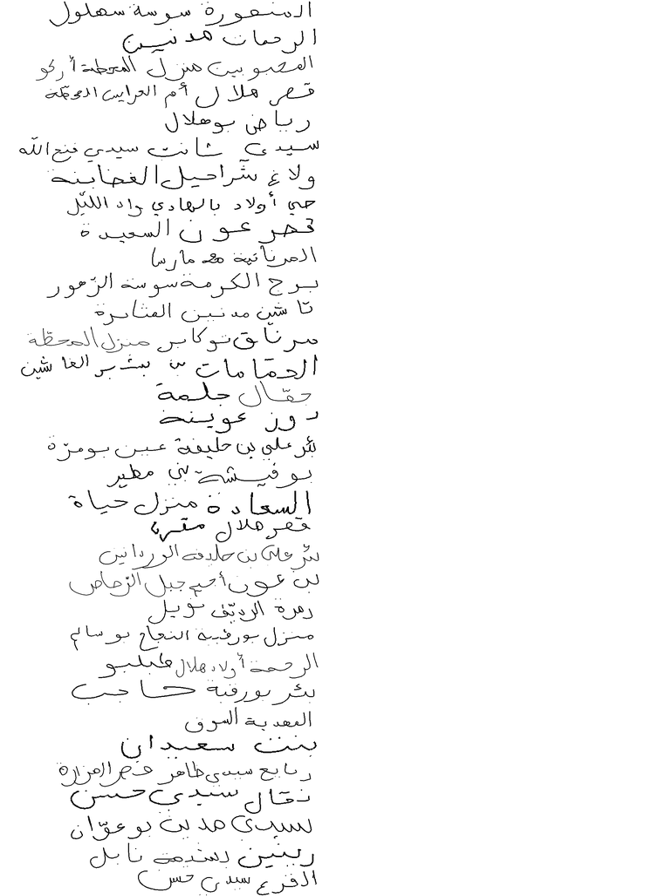 المنصورة سوسة سهلول
الرحمات مدنين
المحبوبين منزل المحطة أركو
قصر هلال أم العرايس المحطة
رياض بوهلال
سيدي شانت سيدي فتح الله
ولاغ شراحيل الغضابنة
حي أولاد بالهادي واد الليل
قصر عون السعيدة
المرناقية 20 مارس
برج الكرمة سوسة الزهور
تاشين مدنين الفنايرة
مرناق توكابر منزل المحطة
الحمامات بن بشير الغاشين
حقال جلمة
دوز عوينة
بئر علي بن خليفة عين بومرة
بوفيشة بني مطير
السعادة منزل حياة
قصر هلال مقرن
بئر علي بن خليفة الوردانين
بن عون أحيم جبل الرصاص
زهرة الرديف نويل
منزل بورقيبة النجاح بوسالم
الرحمة أولاد هلال طبلبو
بئر بورقبة حاجب
المهدية السوق
بنت سعيدان
ربايع سيدي ظاهر قصر المزارة
نقال سيدي حسن
سيدي مدين بوعوان
ربنين دشيمة نابل
القرع سيدي حسن